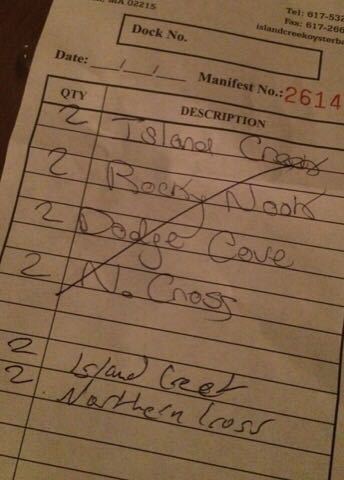 MA 02215
Tel: 617-532
Fax: 617-266
islandcreekoysterb
Dock No.
Date: __/__/__ Manifest No.: 2614
QTY DESCRIPTION
2 Island Creek
2 Rocky Nook
2 Dodge Cove
2 N. Cross
2 Island Creek
2 Northern Cross